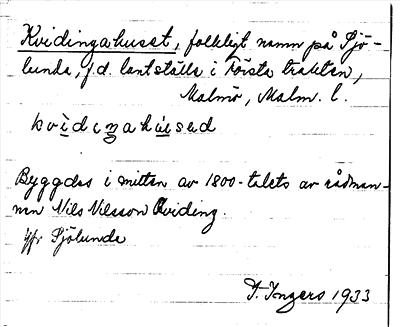 Kvidingahuset, folkligt namn på Sjö-
lunda, f.d. lantställe i Första trakten,
Malmö, Malm. l.
kvìdiŋahúsəd
Byggdes i mitten av 1800-talets av rådman-
nen Nils Nilsson Kviding.
jfr Sjölunda
I. Ingers 1933